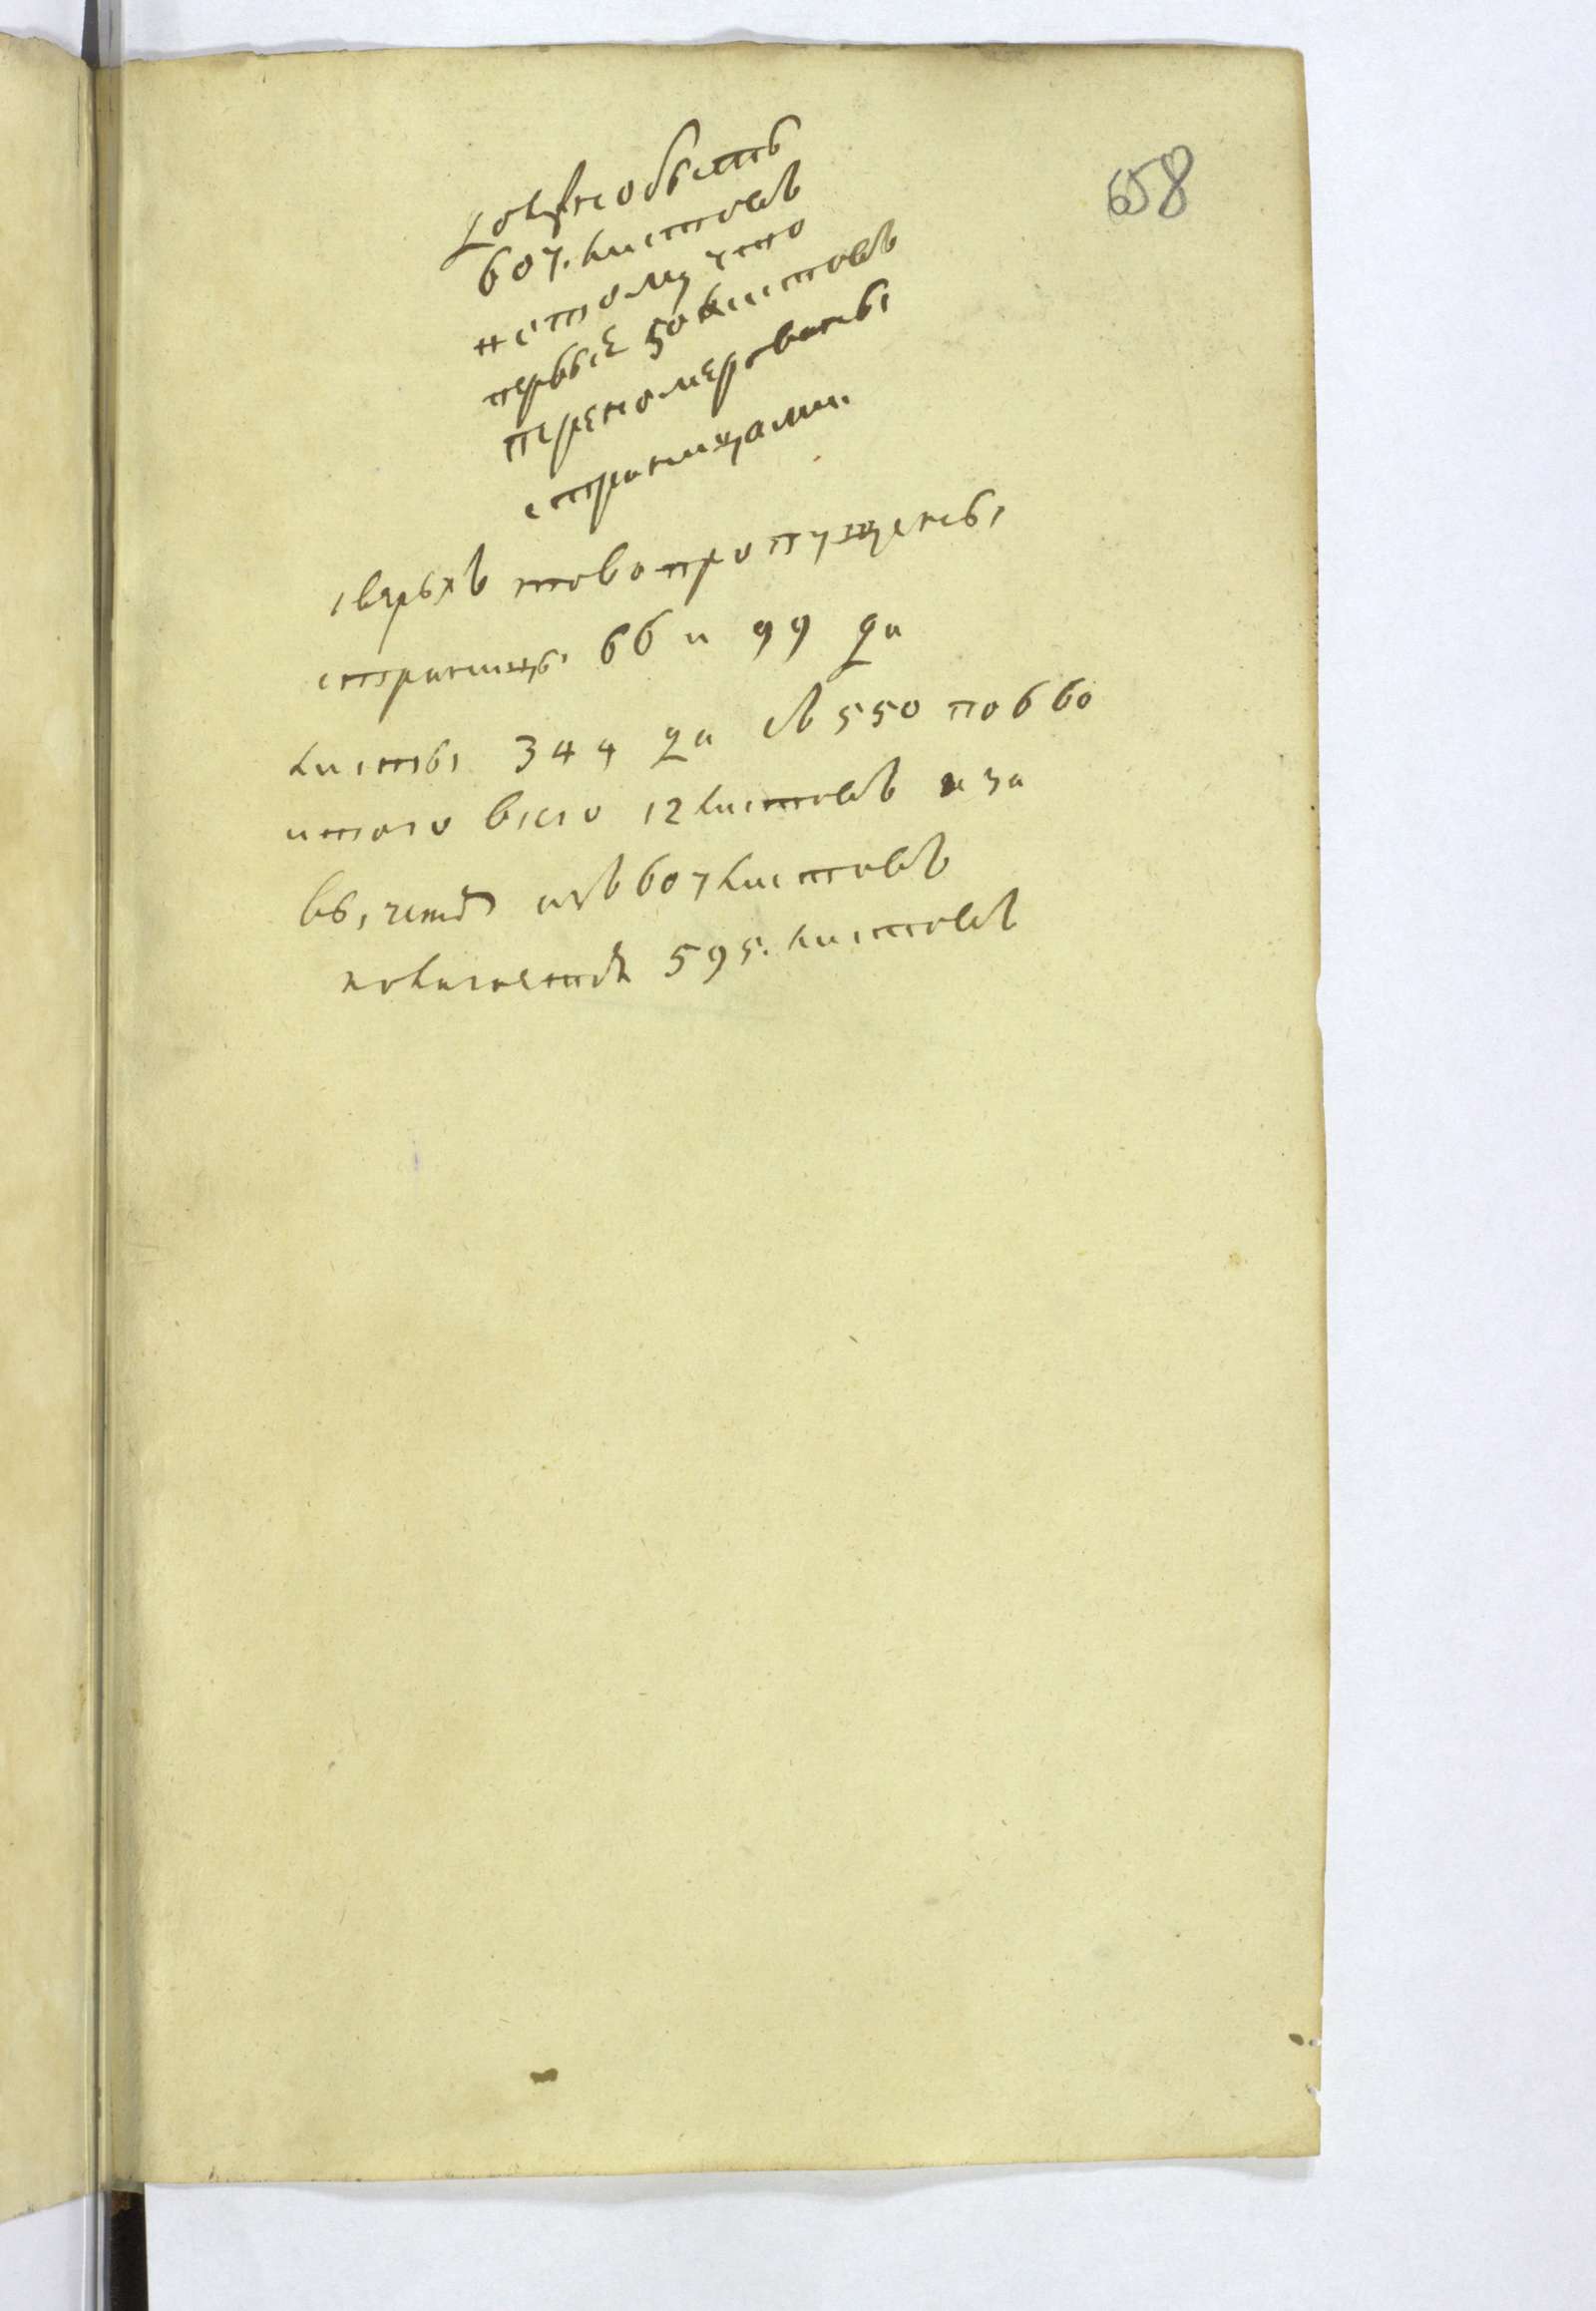 658
должно быть
607. листовъ
потому что
первые 50 листовъ
переномерованы
страницами.
сверьхъ тово пропущены
страницы 66 и 99 да
листы 344 да съ 550 по 660
итого всего 12 листовъ и за
вычетом изъ 607 листовъ
полагается 595. листовъ